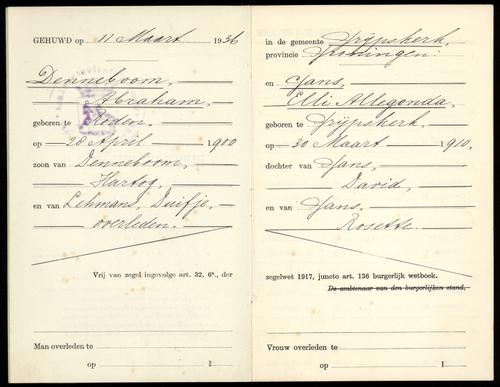 GEHUWD op 11 Maart 1936
Denneboom,
Abraham,
geboren te Roden,
op 28 April 1900
zoon van Denneboom,
Hartog,
en van Lehmans, Duifje,
overleden.
Vrij van zegel ingevolge art. 32, 6º., der
Man overleden te
op 1
in de gemeente Grijpskerk,
provincie Groningen:
en Gans,
Elli Allegonda,
geboren te Grijpskerk,
op 30 Maart 1910,
dochter van Gans,
David,
en van Gans,
Rosette.
zegelwet 1917, juncto art. 136 burgerlijk wetboek.
De ambtenaar van den burgerlijken stand.
Vrouw overleden te
op 1